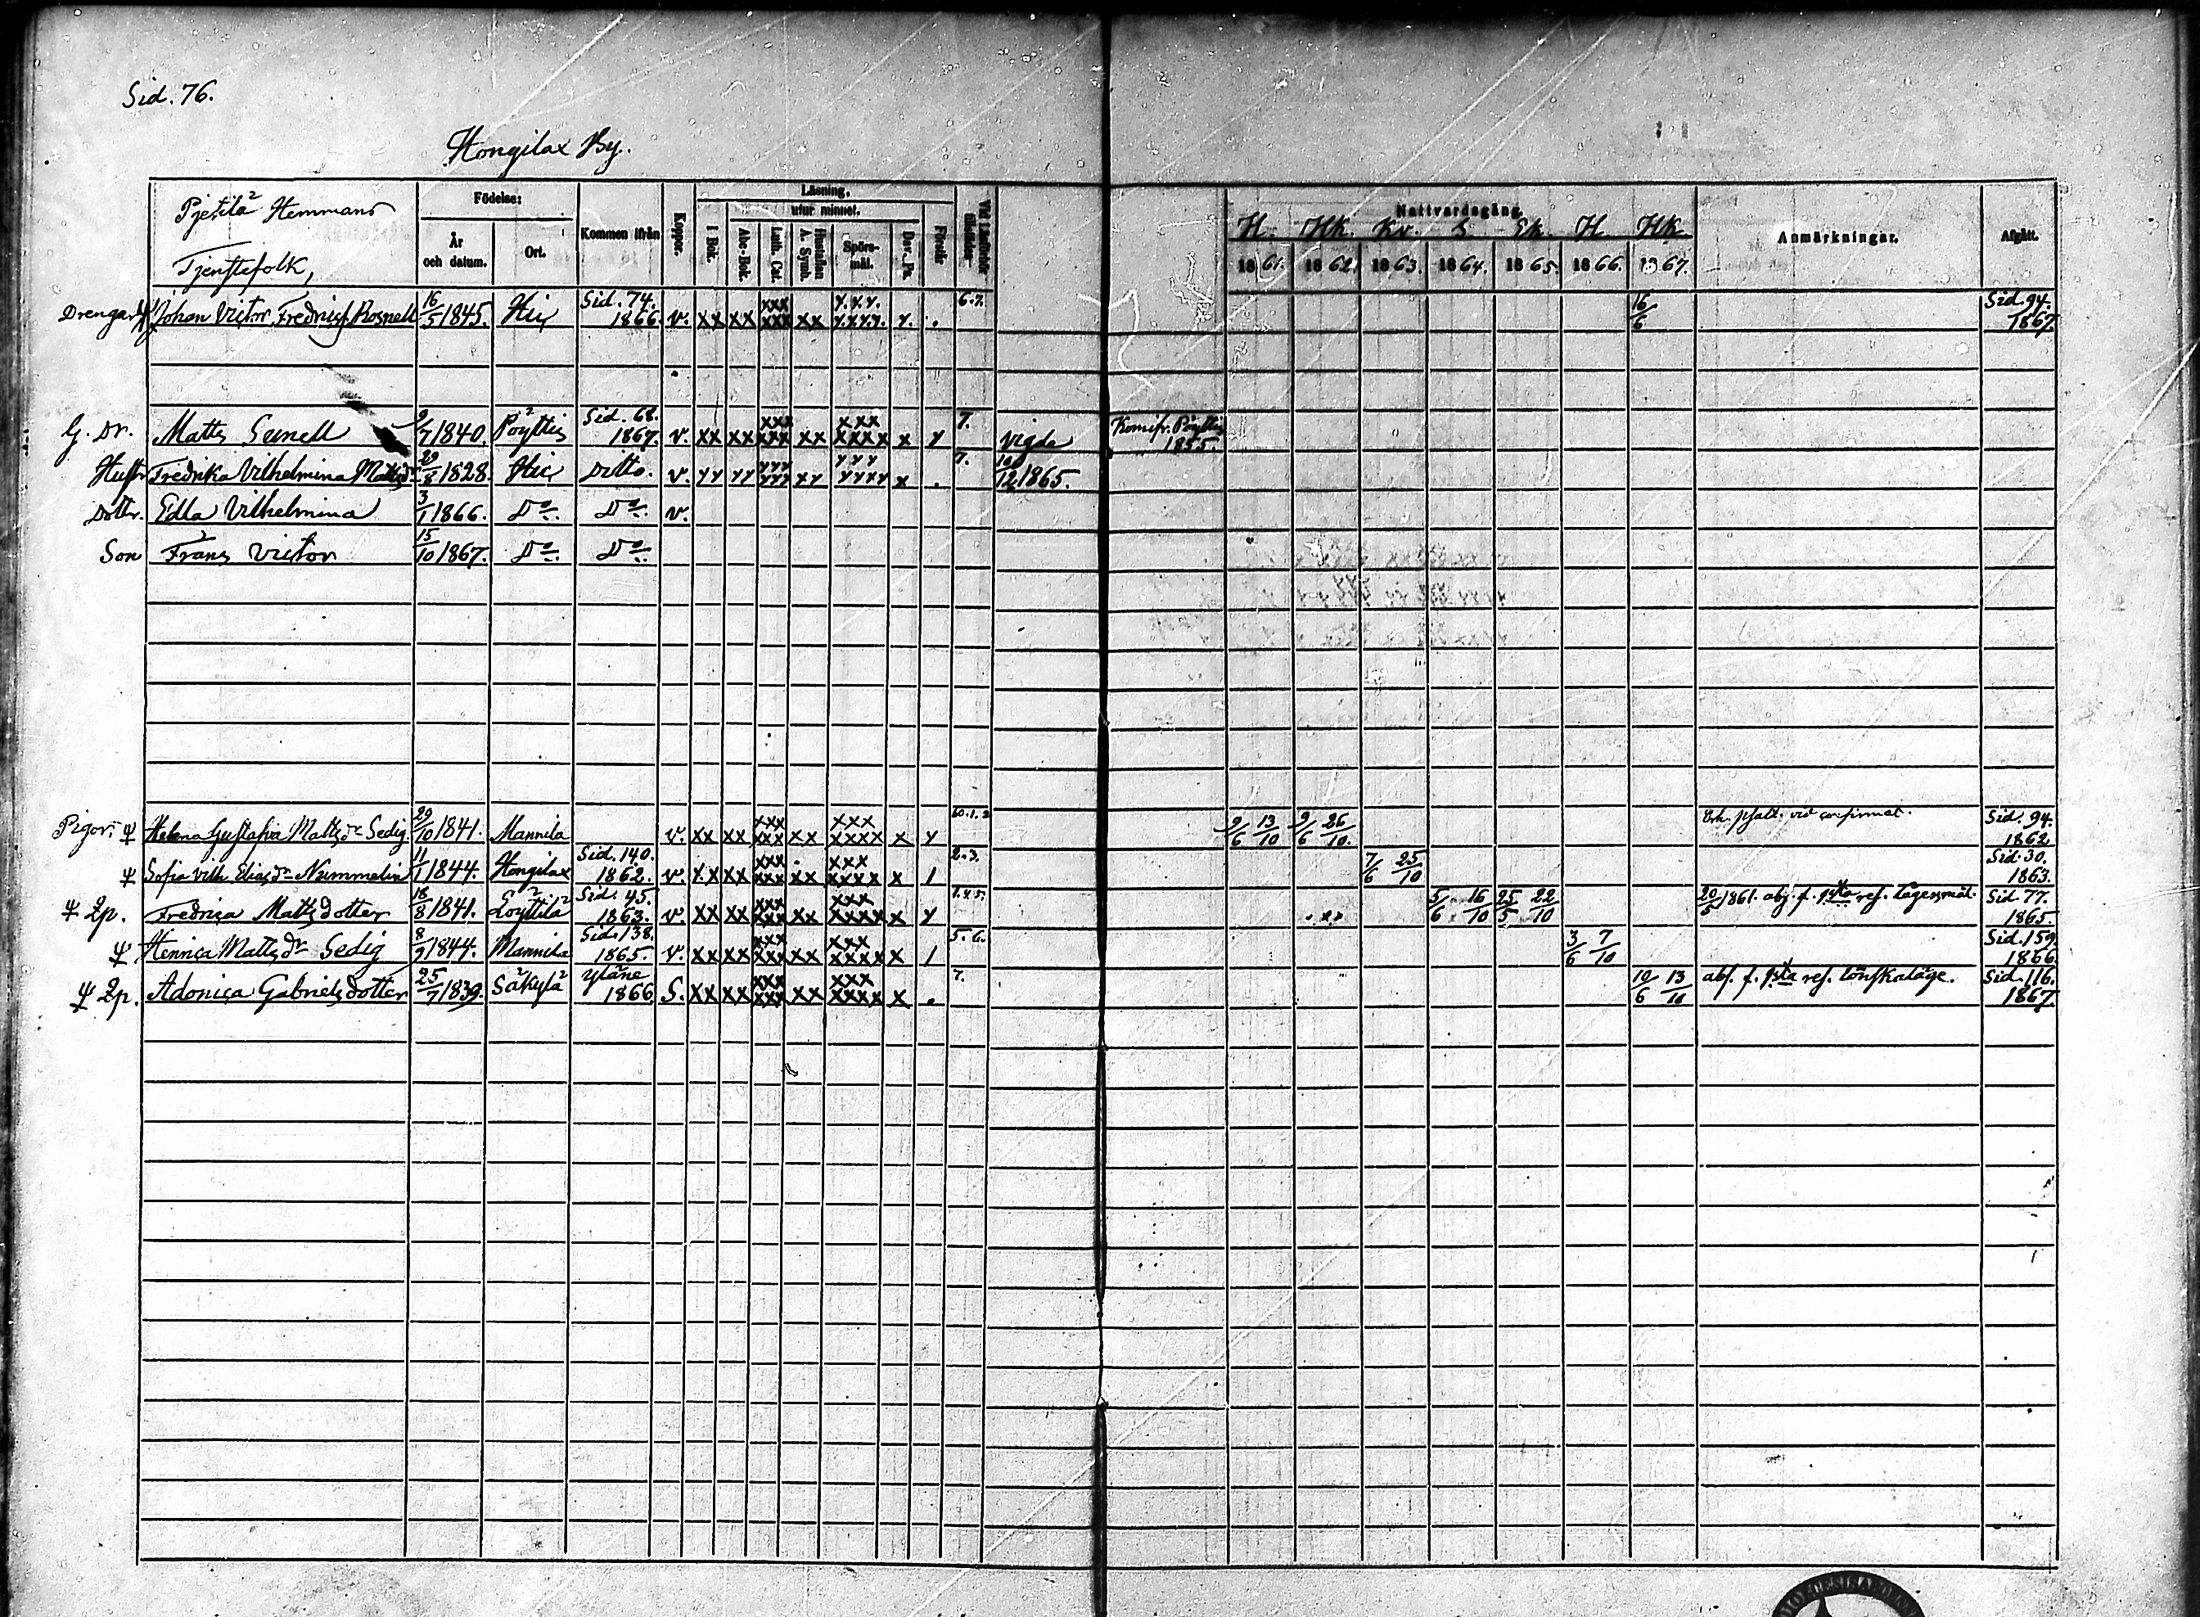 Sid. 76.
Hongilax By.
Pjetilä Hemmans
Tjenstefolk,
Födelse:
År och datum.
Ort.
Kommen ifrån
Koppor.
Läsning,
utur minnet.
I Bok.
Abc-Bok.
Luth. Cat.
Hustaflan A. Symb.
Spörs-mål.
Dav. Ps.
Förstår
Nattvardsgång.
H. Hk. Kv. S. Ek. H Hk
1861. 1862. 1863. 1864. 1865. 1866. 1867.
Anmärkningar.
Afgått.
Drengar Johan Victor Fredricss. Rosnell 16/5 1845. Hic Sid. 74. 1866. v. xx xx xxx xxx xx x.x.x. x.x.x.x. x. . 6.7. 16/6 Sid. 94. 1867.
G. Dr. Matts Sunell 9/7 1840. Pöyttis Sid. 68. 1867. v. xx xx xxx xxx xx xxx xxxx x x 7. vigde Komifr. Pöyttis 1855.
Hustr Fredrika Vilhelmina Mattsdr 29/8 1828. Hic Ditto. v. xx xx xxx xxx xx xxx xxxx x . 7. 10/12 1865.
Dottr. Edla Vilhelmina 3/1 1866. Do Do v.
Son Frans Victor 15/10 1867. Do Do
Pigor. Helena Gustafva Mattsdr Sedig 29/10 1841. Mannila v. xx xx xxx xxx xx xxx xxxx x x 60.1.2 9/6 13/10 9/6 26/10. Erh. psalt. vid confirmat. Sid. 94. 1862
Sofia Vilh. Eliasdr Nummelin 11/1 1844. Hongilax Sid. 140. 1862. v. xx xx xxx xxx xx xxx xxxx x / 2.3. 7/6 25/10 Sid. 30. 1863.
Qp. Fredrica Mattsdotter 18/8 1841. Löyttilä Sid. 45. 1863. v. xx xx xxx xxx xx xxx xxxx x x 5/6 16/10 25/5 22/10 20/5 1861. abs. f. lägersmål. Sid 77. 1865.
Henrica Mattsdr Sedig 8/9 1844. Mannila Sid. 138. 1865. v. xx xx xxx xxx xx xxx xxxx x / 5.6. 3/6 7/10 Sid. 159 1866
Qp. Adonica Gabrielsdotter 25/7 1839. Säkylä Yläne 1866 S. xx xx xxx xxx xx xxx xxxx x . 7. 10/6 13/10 abs. f. lönskaläge. Sid. 116. 1867.